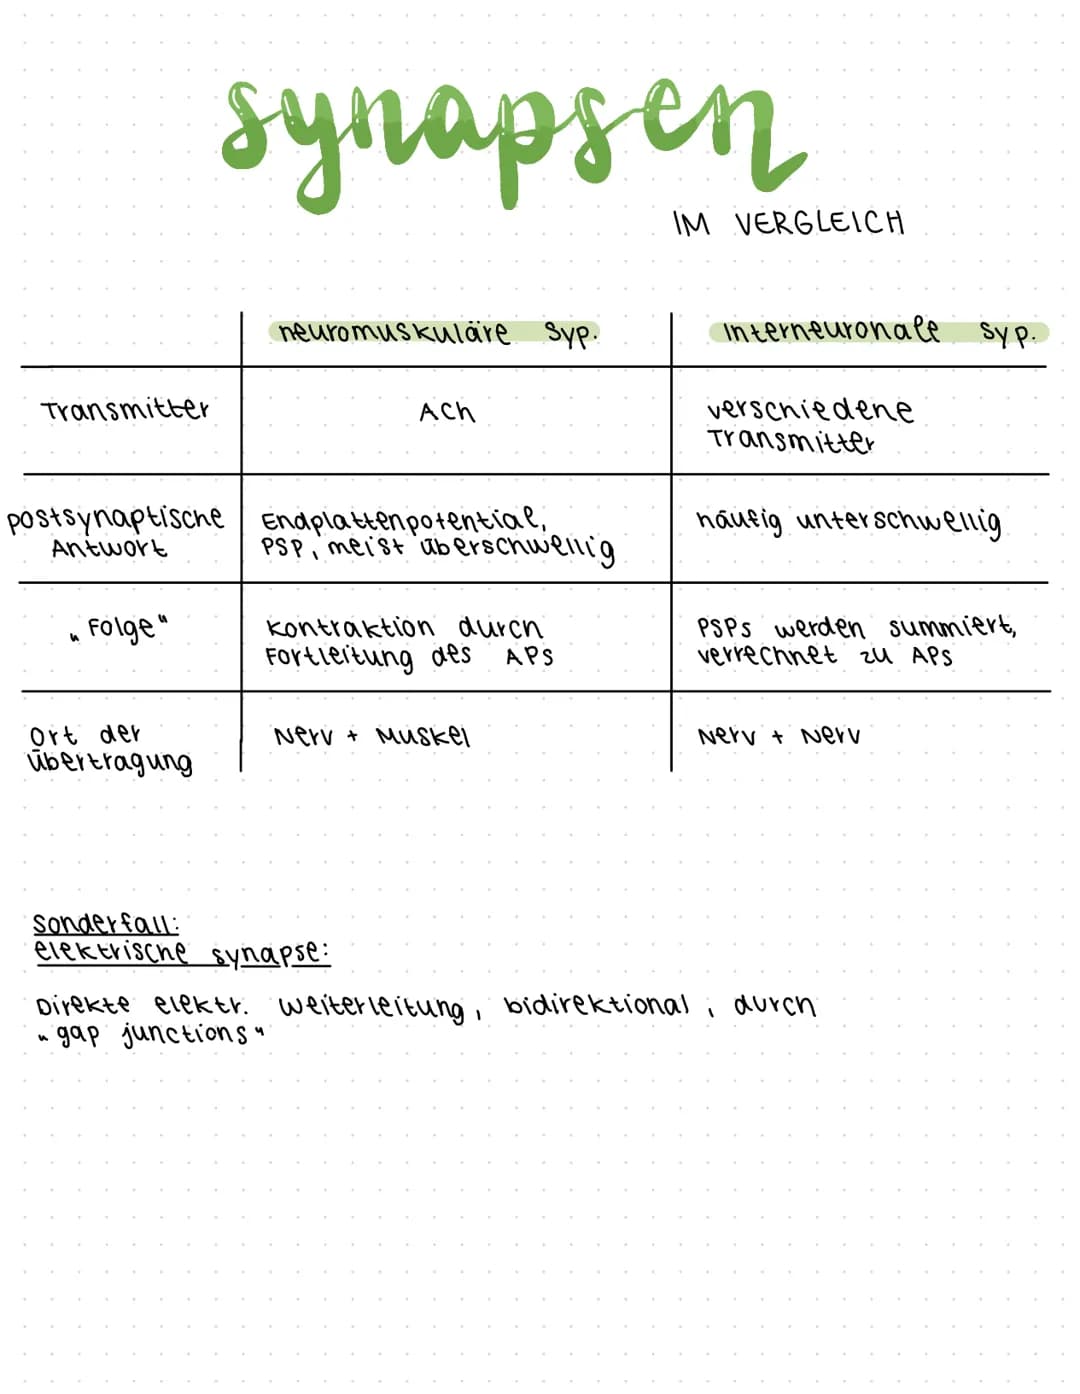 synapsen
IM VERGLEICH
neuromuskuläre Syp.
Interneuronale Syp.
Transmitter
ACh
verschiedene
Transmitter
postsynaptische
Antwort
Endplattenpotential,
PSP, meist überschwellig
häufig unterschwellig
„Folge“
Kontraktion durch
Fortleitung des APs
PSPs werden summiert,
verrechnet zu APs
Ort der
Übertragung
Nerv + Muskel
Nerv + Nerv
Sonderfall:
elektrische Synapse:
Direkte elektr. Weiterleitung, bidirektional, durch
„gap junctions“